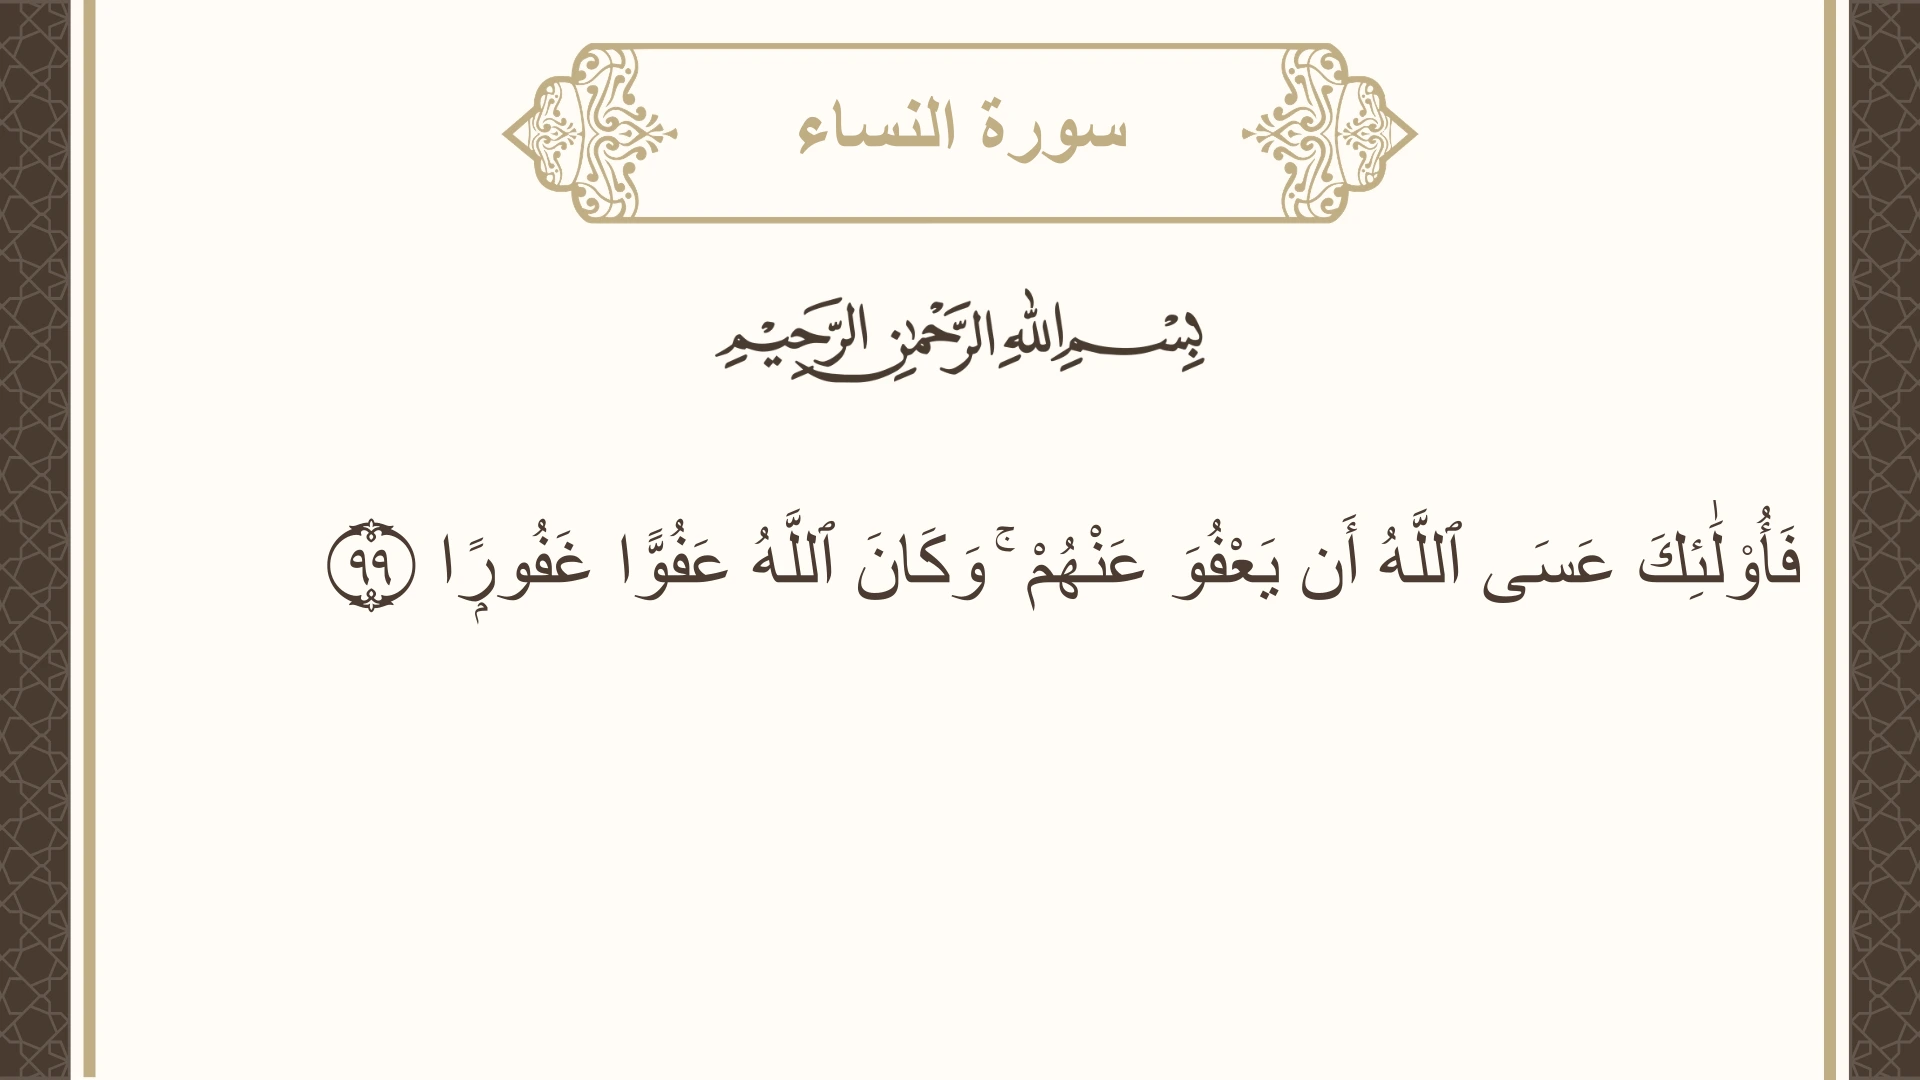 سورة النساء
بِسْمِ اللهِ الرَّحْمٰنِ الرَّحِيْمِ
فَأُو۟لَٰٓئِكَ عَسَى ٱللَّهُ أَن يَعْفُوَ عَنْهُمْ ۚ وَكَانَ ٱللَّهُ عَفُوًّا غَفُورًۭا ۝٩٩